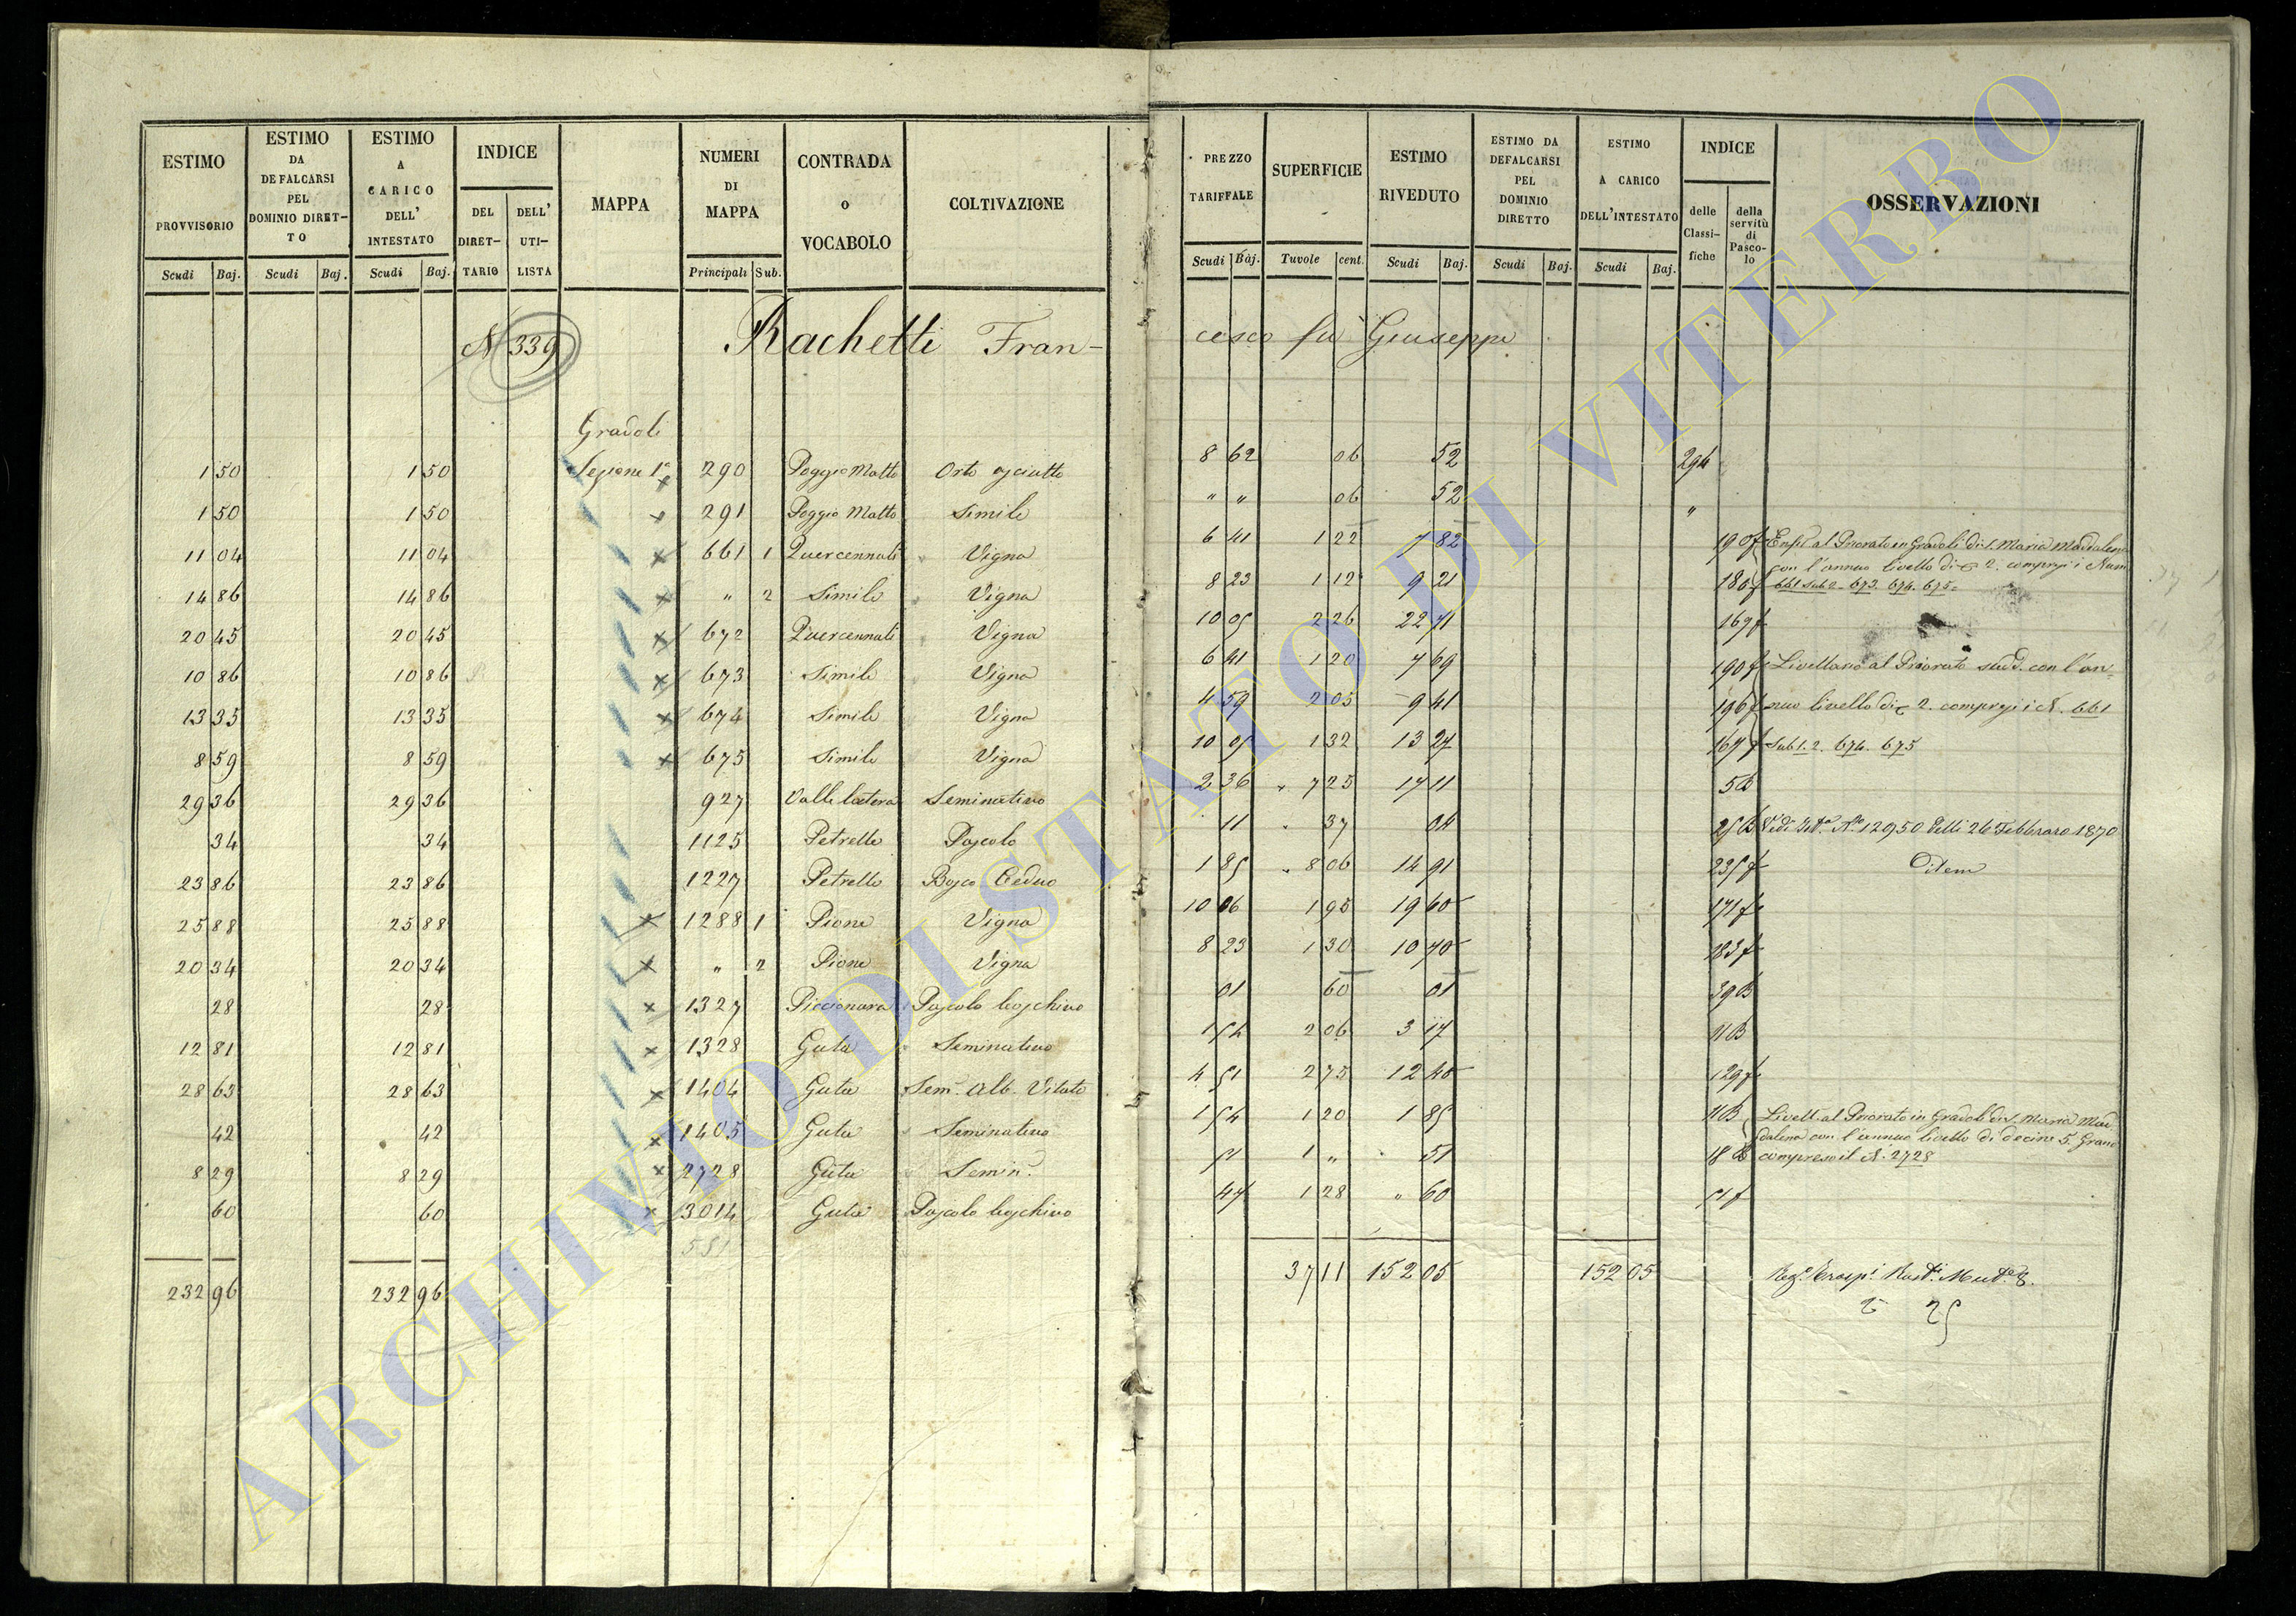 ESTIMO PROVVISORIO Scudi Baj.
ESTIMO DA DEFALCARSI PEL DOMINIO DIRET-TO Scudi Baj.
ESTIMO A CARICO DELL' INTESTATO Scudi Baj.
INDICE DEL DIRET-TARIO DELL' UTI-LISTA
MAPPA
NUMERI DI MAPPA Principali Sub.
CONTRADA O VOCABOLO
COLTIVAZIONE
PREZZO TARIFFALE Scudi Baj.
SUPERFICIE Tavole cent.
ESTIMO RIVEDUTO Scudi Baj.
ESTIMO DA DEFALCARSI PEL DOMINIO DIRETTO Scudi Baj.
ESTIMO A CARICO DELL'INTESTATO Scudi Baj.
INDICE delle Classi-fiche della servitù di Pasco-lo
OSSERVAZIONI
N 339 Rachetti Fran- cesco fu Giuseppe
Gradoli
1 50 1 50 Sezione 1ª 290 Poggio Matto Orto asciutto 8 62 06 52 294
1 50 1 50 291 Poggio Matto Simile " " 06 52 "
11 04 11 04 661 1 Quercennati Vigna 6 41 1 22 7 82 190 f Enfit. al Priorato in Gradoli di S. Maria Maddalena
con l'annuo livello di 2. compresi i Num
14 86 14 86 " 2 Simile Vigna 8 23 1 12 9 21 180 f 661 Sub 2. 673. 674. 675.
20 45 20 45 672 Quercennati Vigna 10 05 2 26 22 71 169 f
10 86 10 86 673 Simile Vigna 6 41 1 20 7 69 190 f Livellario al Priorato sud. con l'an-
13 35 13 35 674 Simile Vigna 4 59 2 05 9 41 196 f nuo livello di 2. compresi i N. 661
8 59 8 59 675 Simile Vigna 10 05 1 32 13 27 167 f Sub 1. 2. 674. 675
29 36 29 36 927 Valle latera Seminativo 2 36 7 25 17 11 5 B
34 34 1125 Petrello Pascolo 11 37 04 25 B Vedi N° 12950 delli 26 Febbraro 1870
23 86 23 86 1227 Petrello Bosco Ceduo 1 85 8 06 14 91 235 f Idem
25 88 25 88 1288 1 Pione Vigna 10 06 1 95 19 60 171 f
20 34 20 34 " 2 Pione Vigna 8 23 1 30 10 70 183 f
28 28 1327 Piccionara Pascolo boschivo 01 60 01 39 B
12 81 12 81 1328 Guta Seminativo 1 54 2 06 3 17 11 B
28 63 28 63 1404 Guta Sem. Alb. Vitato 4 51 2 75 12 40 129 f
42 42 1405 Guta Seminativo 1 54 1 20 1 85 11 B Livell. al Priorato in Gradoli di S. Maria Mad
dalena con l'annuo livello di decine 5. Grano
8 29 8 29 2728 Guta Semin. 51 1 " 51 18 B compreso il N. 2728
60 60 3014 Guta Pascolo boschivo 47 1 28 " 60 51 f
551
232 96 232 96 37 11 152 05 152 05
25
ARCHIVIO DI STATO DI VITERBO